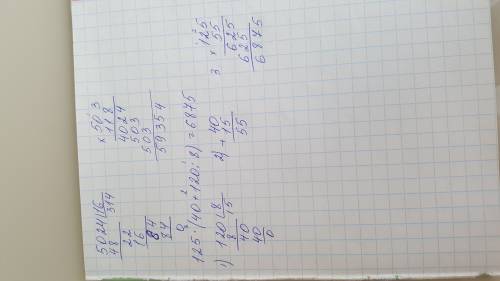 5024 16
48 314
22
16
64
64
0
× 503
118
4024
503
503
59354
125 · (40 + 120 : 8) = 6875
1) 120 8
8 15
40
40
0
2) + 40
15
55
3 × 125
55
625
625
6875